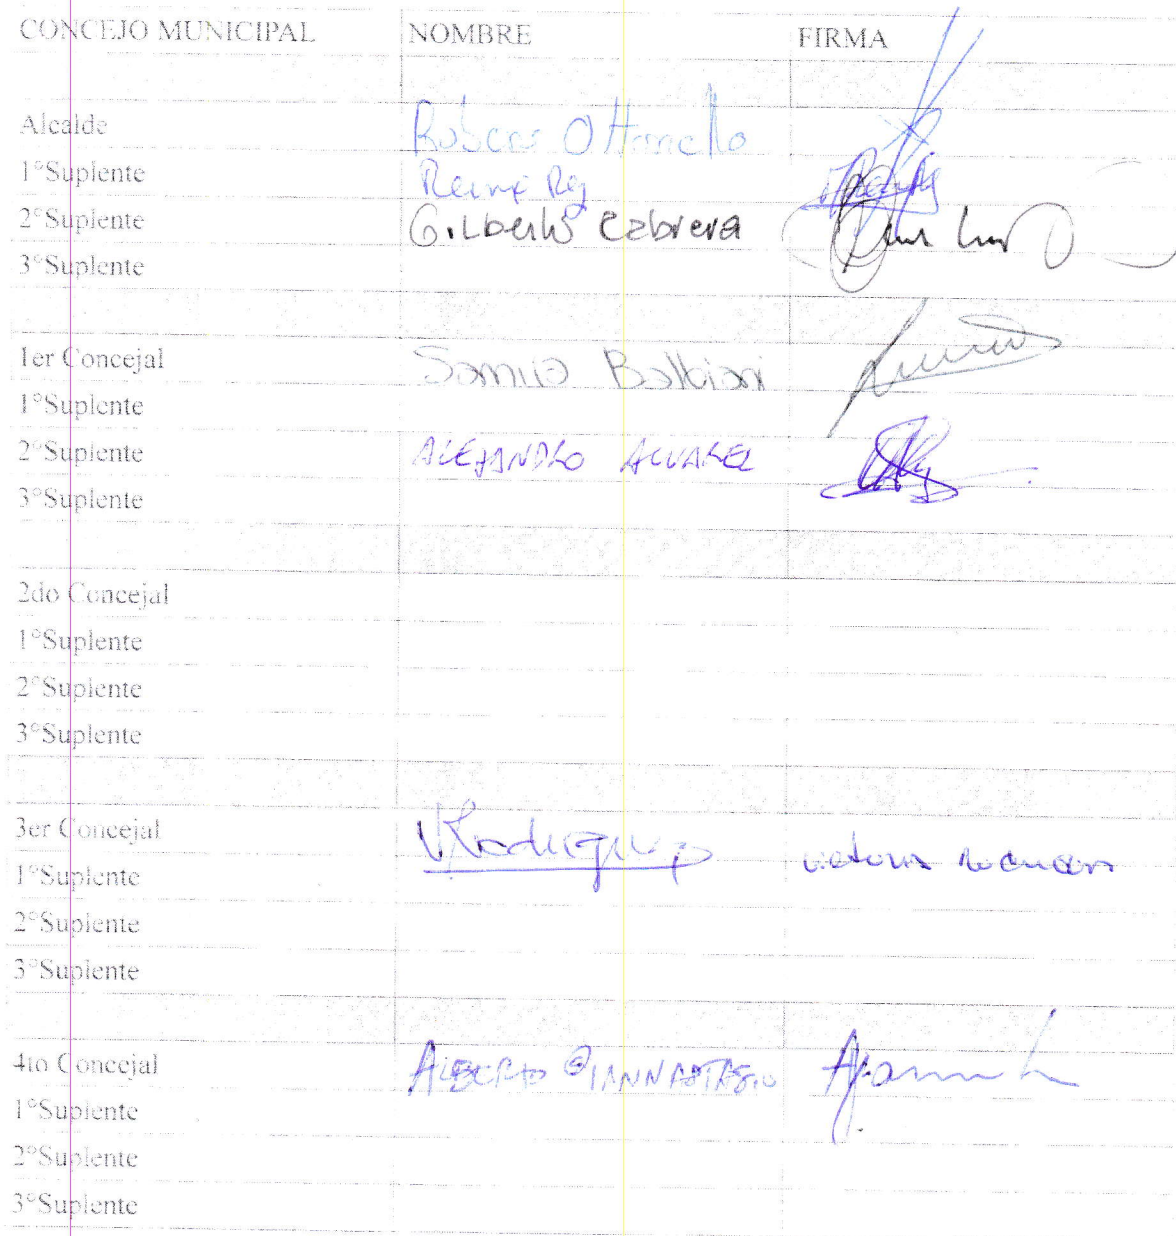 CONCEJO MUNICIPAL NOMBRE FIRMA
Alcalde Ottonello
1°Suplente
2°Suplente Gilberto Cabrera
3°Suplente
1er Concejal Balbiani
1°Suplente
2°Suplente ALEJANDRO ALVAREZ
3°Suplente
2do Concejal
1°Suplente
2°Suplente
3°Suplente
3er Concejal
1°Suplente
2°Suplente
3°Suplente
4to Concejal ALBERTO GIANNASTASIO
1°Suplente
2°Suplente
3°Suplente